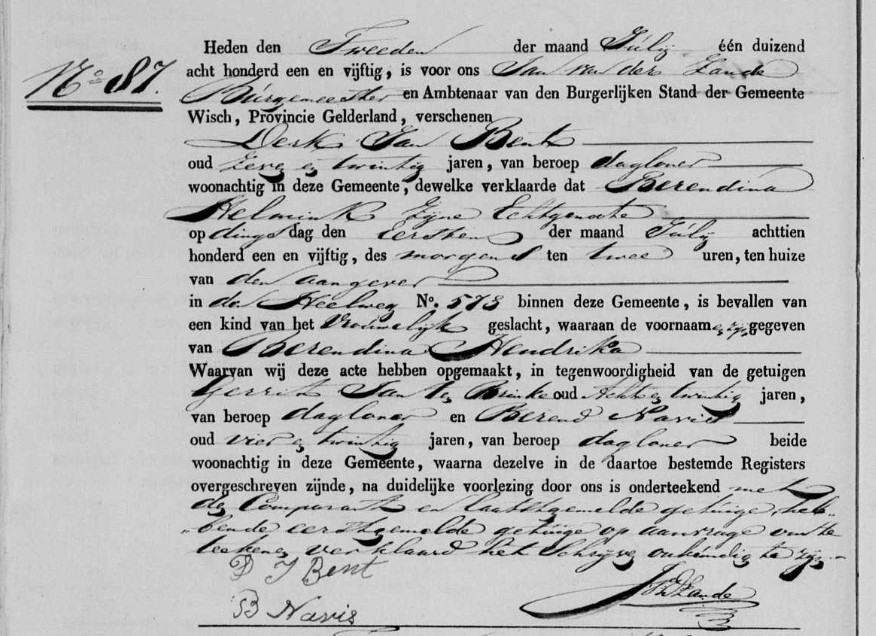 Heden den Tweeden der maand Julij één duizend
No 87. acht honderd een en vijftig, is voor ons Jan van der Zande
Burgemeester en Ambtenaar van den Burgerlijken Stand der Gemeente
Wisch, Provincie Gelderland, verschenen
Derk Jan Bent
oud zeven en twintig jaren, van beroep dagloner
woonachtig in deze Gemeente, dewelke verklaarde dat Berendina
Helmink zijne Echtgenoote
op dingsdag den Eersten der maand Julij achttien
honderd een en vijftig, des morgens ten twee uren, ten huize
van den aangever
in den Heelweg No. 578 binnen deze Gemeente, is bevallen van
een kind van het vrouwelijk geslacht, waaraan de voornaamen zijn gegeven
van Berendina Hendrika
Waarvan wij deze acte hebben opgemaakt, in tegenwoordigheid van de getuigen
Gerrit Jan Brinke oud Acht en twintig jaren,
van beroep dagloner en Berend Navis
oud vier en twintig jaren, van beroep dagloner beide
woonachtig in deze Gemeente, waarna dezelve in de daartoe bestemde Registers
overgeschreven zijnde, na duidelijke voorlezing door ons is onderteekend met
de Comparant en laatstgemelde getuige, heb-
bende eerstgemelde getuige op aanvrage om te
teekenen verklaard het Schrijven onkundig te zijn
D J Bent
B Navis
JvdZande